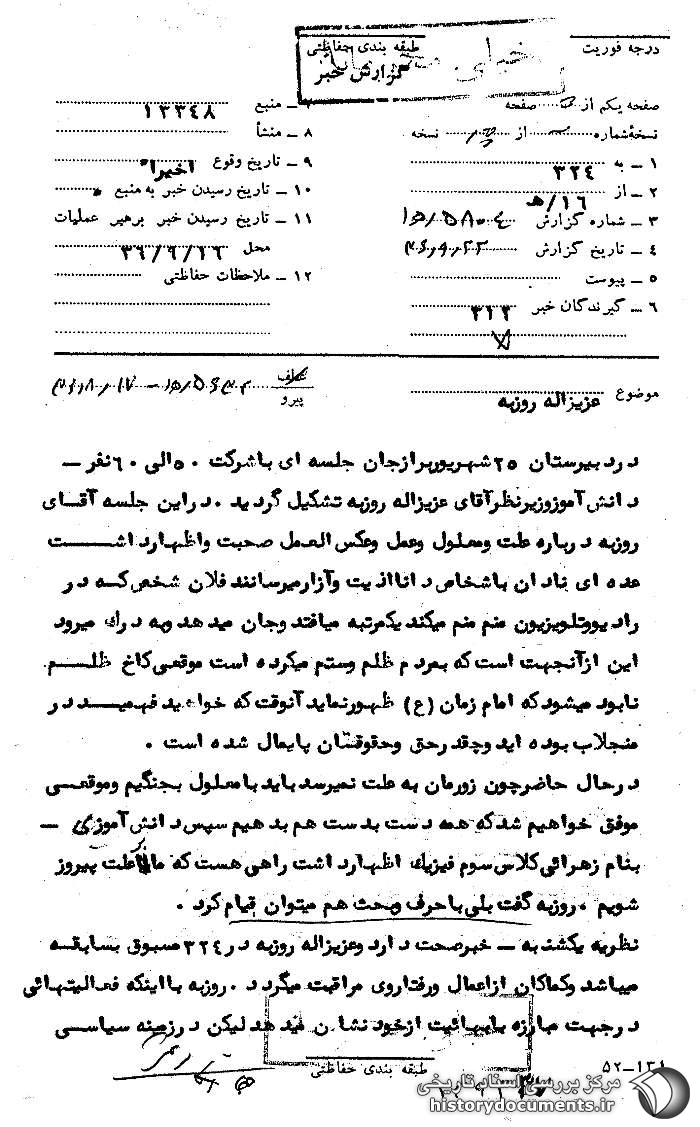 درجه فوریت
طبقه بندی حفاظتی
گزارش خبر
خیلی
صفحه یکم از صفحه
نسخهٔ شماره از نسخه
۱ ـ به ۳۲٤
۲ ـ از ۱٦/ هـ
۳ ـ شماره گزارش
٤ ـ تاریخ گزارش
۵ ـ پیوست
٦ ـ گیرندگان خبر ۳۲۳
۷ ـ منبع ۱۳۳٤۸
۸ ـ منشأ
۹ ـ تاریخ وقوع اخیرا"
۱۰ ـ تاریخ رسیدن خبر به منبع
۱۱ ـ تاریخ رسیدن خبر برهبر عملیات
محل ۳٦/۹/۱٦
۱۲ ـ ملاحظات حفاظتی
موضوع عزیزاله روزبه
عطف
پیرو
در دبیرستان ۲۵ شهریور برازجان جلسه ای با شرکت ۵۰ الی ٦۰ نفر ـ
دانش آموز وزیرنظر آقای عزیزاله روزبه تشکیل گردید . در این جلسه آقای
روزبه درباره علت ومعلول وعمل وعکس العمل صحبت واظهارداشت
عده ای نادان باشخاص دانااذیت وآزارمیرسانند فلان شخص که در
رادیووتلویزیون منم منم میکند یکمرتبه میافتد وجان میدهد وبه درك میرود
این ازآنجهت است که بمردم ظلم وستم میکرده است موقعی کاخ ظلم
نابود میشود که امام زمان (ع) ظهورنماید آنوقت که خواهید فهمید در
منجلاب بوده اید وچقدرحق وحقوقتان پایمال شده است .
درحال حاضرچون زورمان به علت نمیرسد باید بامعلول بجنگیم وموقعی
موفق خواهیم شد که همه دست بدست هم بدهیم سپس دانش آموزی ـ
بنام زهرائی کلاس سوم فیزیك اظهارداشت راهی هست که ما باعلت پیروز
شویم . روزبه گفت بلی باحرف وبحث هم میتوان قیام کرد .
نظریه یکشنبه ـ خبرصحت دارد وعزیزاله روزبه در ۳۲٤ مسبوق بسابقه
میباشد وکماکان ازاعمال ورفتاروی مراقبت میگردد . روزبه بااینکه فعالیتهائی
درجهت مبارزه بابهائیت ازخود نشان میدهد لیکن درزمینه سیاسی
طبقه بندی حفاظتی
۵۲-۱۳۱
مرکز بررسی اسناد تاریخی
historydocuments.ir